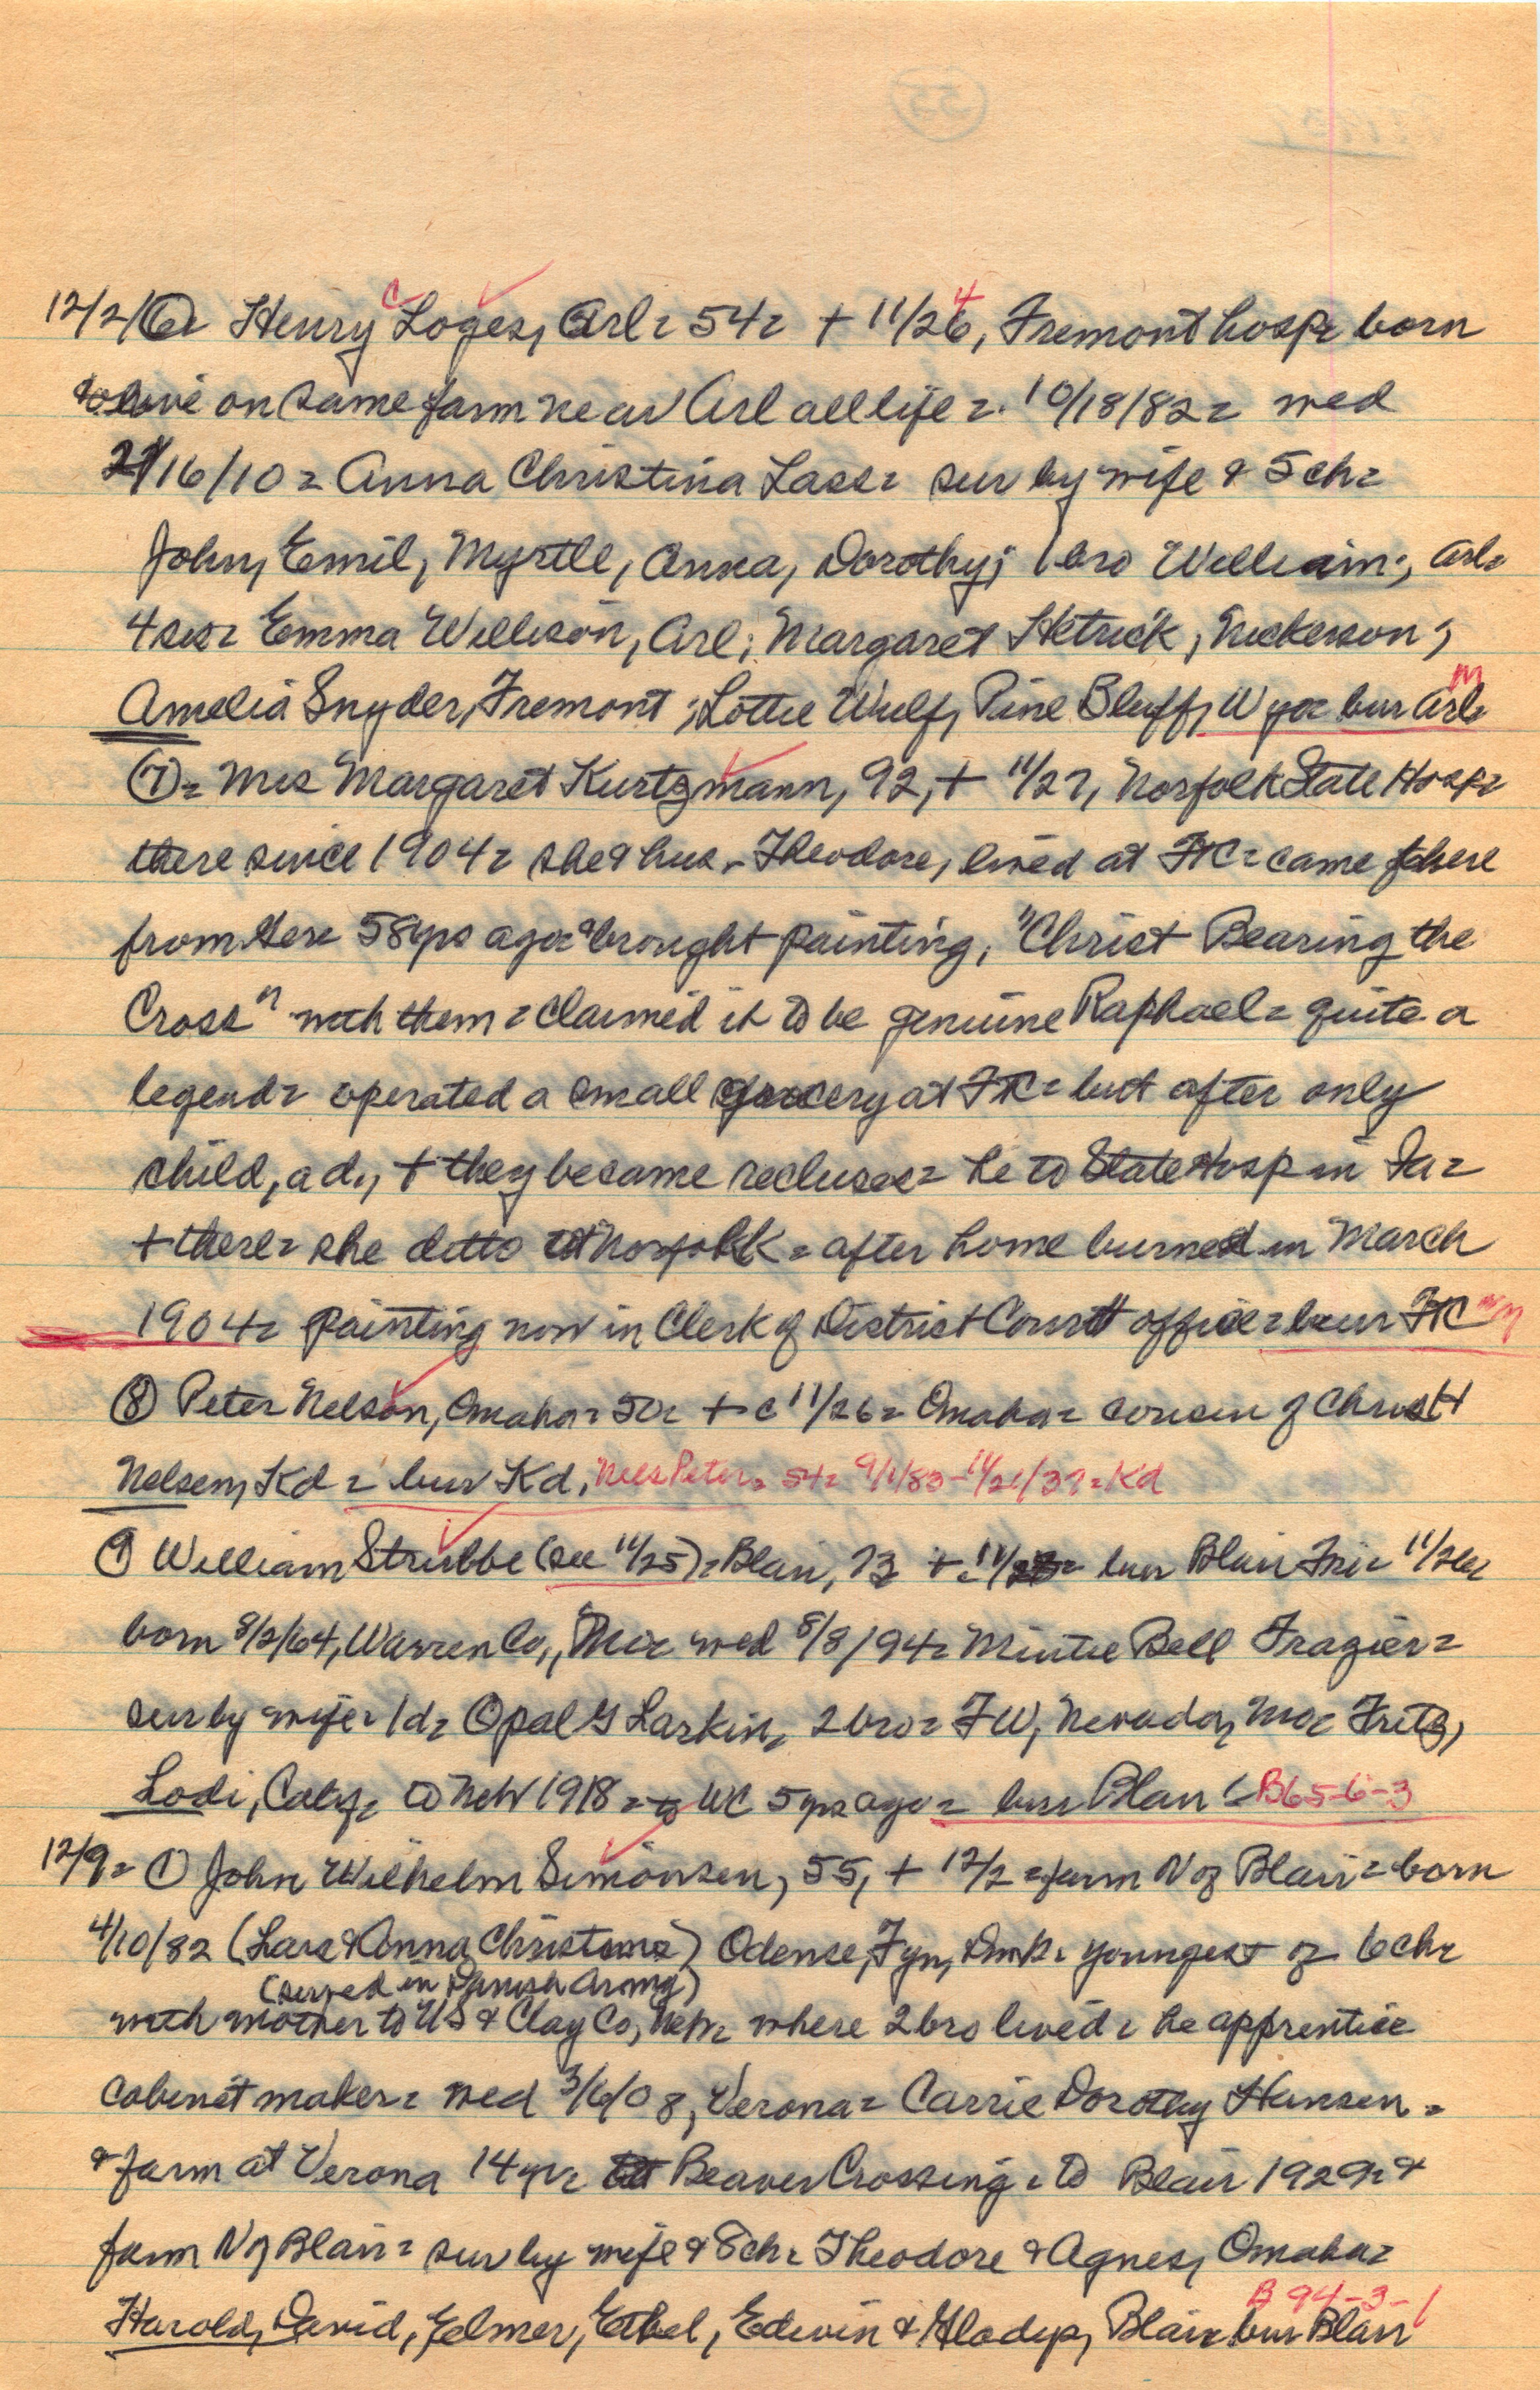 12/2/(6)= Henry C Loges, Arl= 54= + 11/26, 4 Fremont hosp= born
& live on same farm near Arl all life=. 10/18/82= wed
2/16/10= Anna Christina Lass= sur by wife & 5 ch=
John, Emil, Myrtle, Anna, Dorothy; 1 bro William; Arl=
4 sis= Emma Willison, Arl; Margaret Hetrick, Nickerson;
Amelia Snyder, Fremont; Lottie Wulf, Pine Bluff, Wyo= bur Arl= M
(7)= Mrs Margaret Kurtzmann, 92, + 11/27, Norfolk State Hosp=
there since 1904= she & hus. Theodore, lived at FtC= came there
from Ger= 58 yrs ago= & brought painting, "Christ Bearing the
Cross" with them= claimed it to be genuine Raphael= quite a
legend= operated a small grocery at FtC= but after only
child, a d., + they became recluses= he to State Hosp in Ia=
+ there= she ditto at Norfolk= after home burned in March
1904= painting now in Clerk of District Court office= bur FtC
(8) Peter Nelson, Omaha= 50= + c 11/26= Omaha= cousin of Christ
Nelsen, Kd= bur Kd, Nels Peter= 54= 9/1/83-11/21/37= Kd
(9) William Strubbe (see 11/25)= Blair, 73 + bur Blair Fri= 11/26=
born 8/2/64, Warren Co., Mo= wed 8/8/94= Mintie Bell Frazier=
sur by wife= 1 d= Opal G Larkin, 2 bro= FW, Nevada, Mo= Fritz,
Lodi, Calif= to Neb 1918= to WC 5 yrs ago= bur Blair = B65-6-3
12/9= (1) John Wilhelm Simonsen, 55, + 12/2= farm N of Blair= born
4/10/82 (Lars & Anna Christine) Odense, Fyn, Dmk= youngest of 6 ch=
(served in Danish Army)
with mother to US & Clay Co, Neb= where 2 bro lived= he apprentice
cabinet maker= wed 3/6/08, Verona= Carrie Dorothy Hansen=
& farm at Verona 14 yr= Beaver Crossing= to Blair 1929= &
farm N of Blair= sur by wife & 8 ch= Theodore & Agnes, Omaha=
B 94-3-1
Harold, David, Elmer, Ethel, Edwin & Gladys, Blair= bur Blair